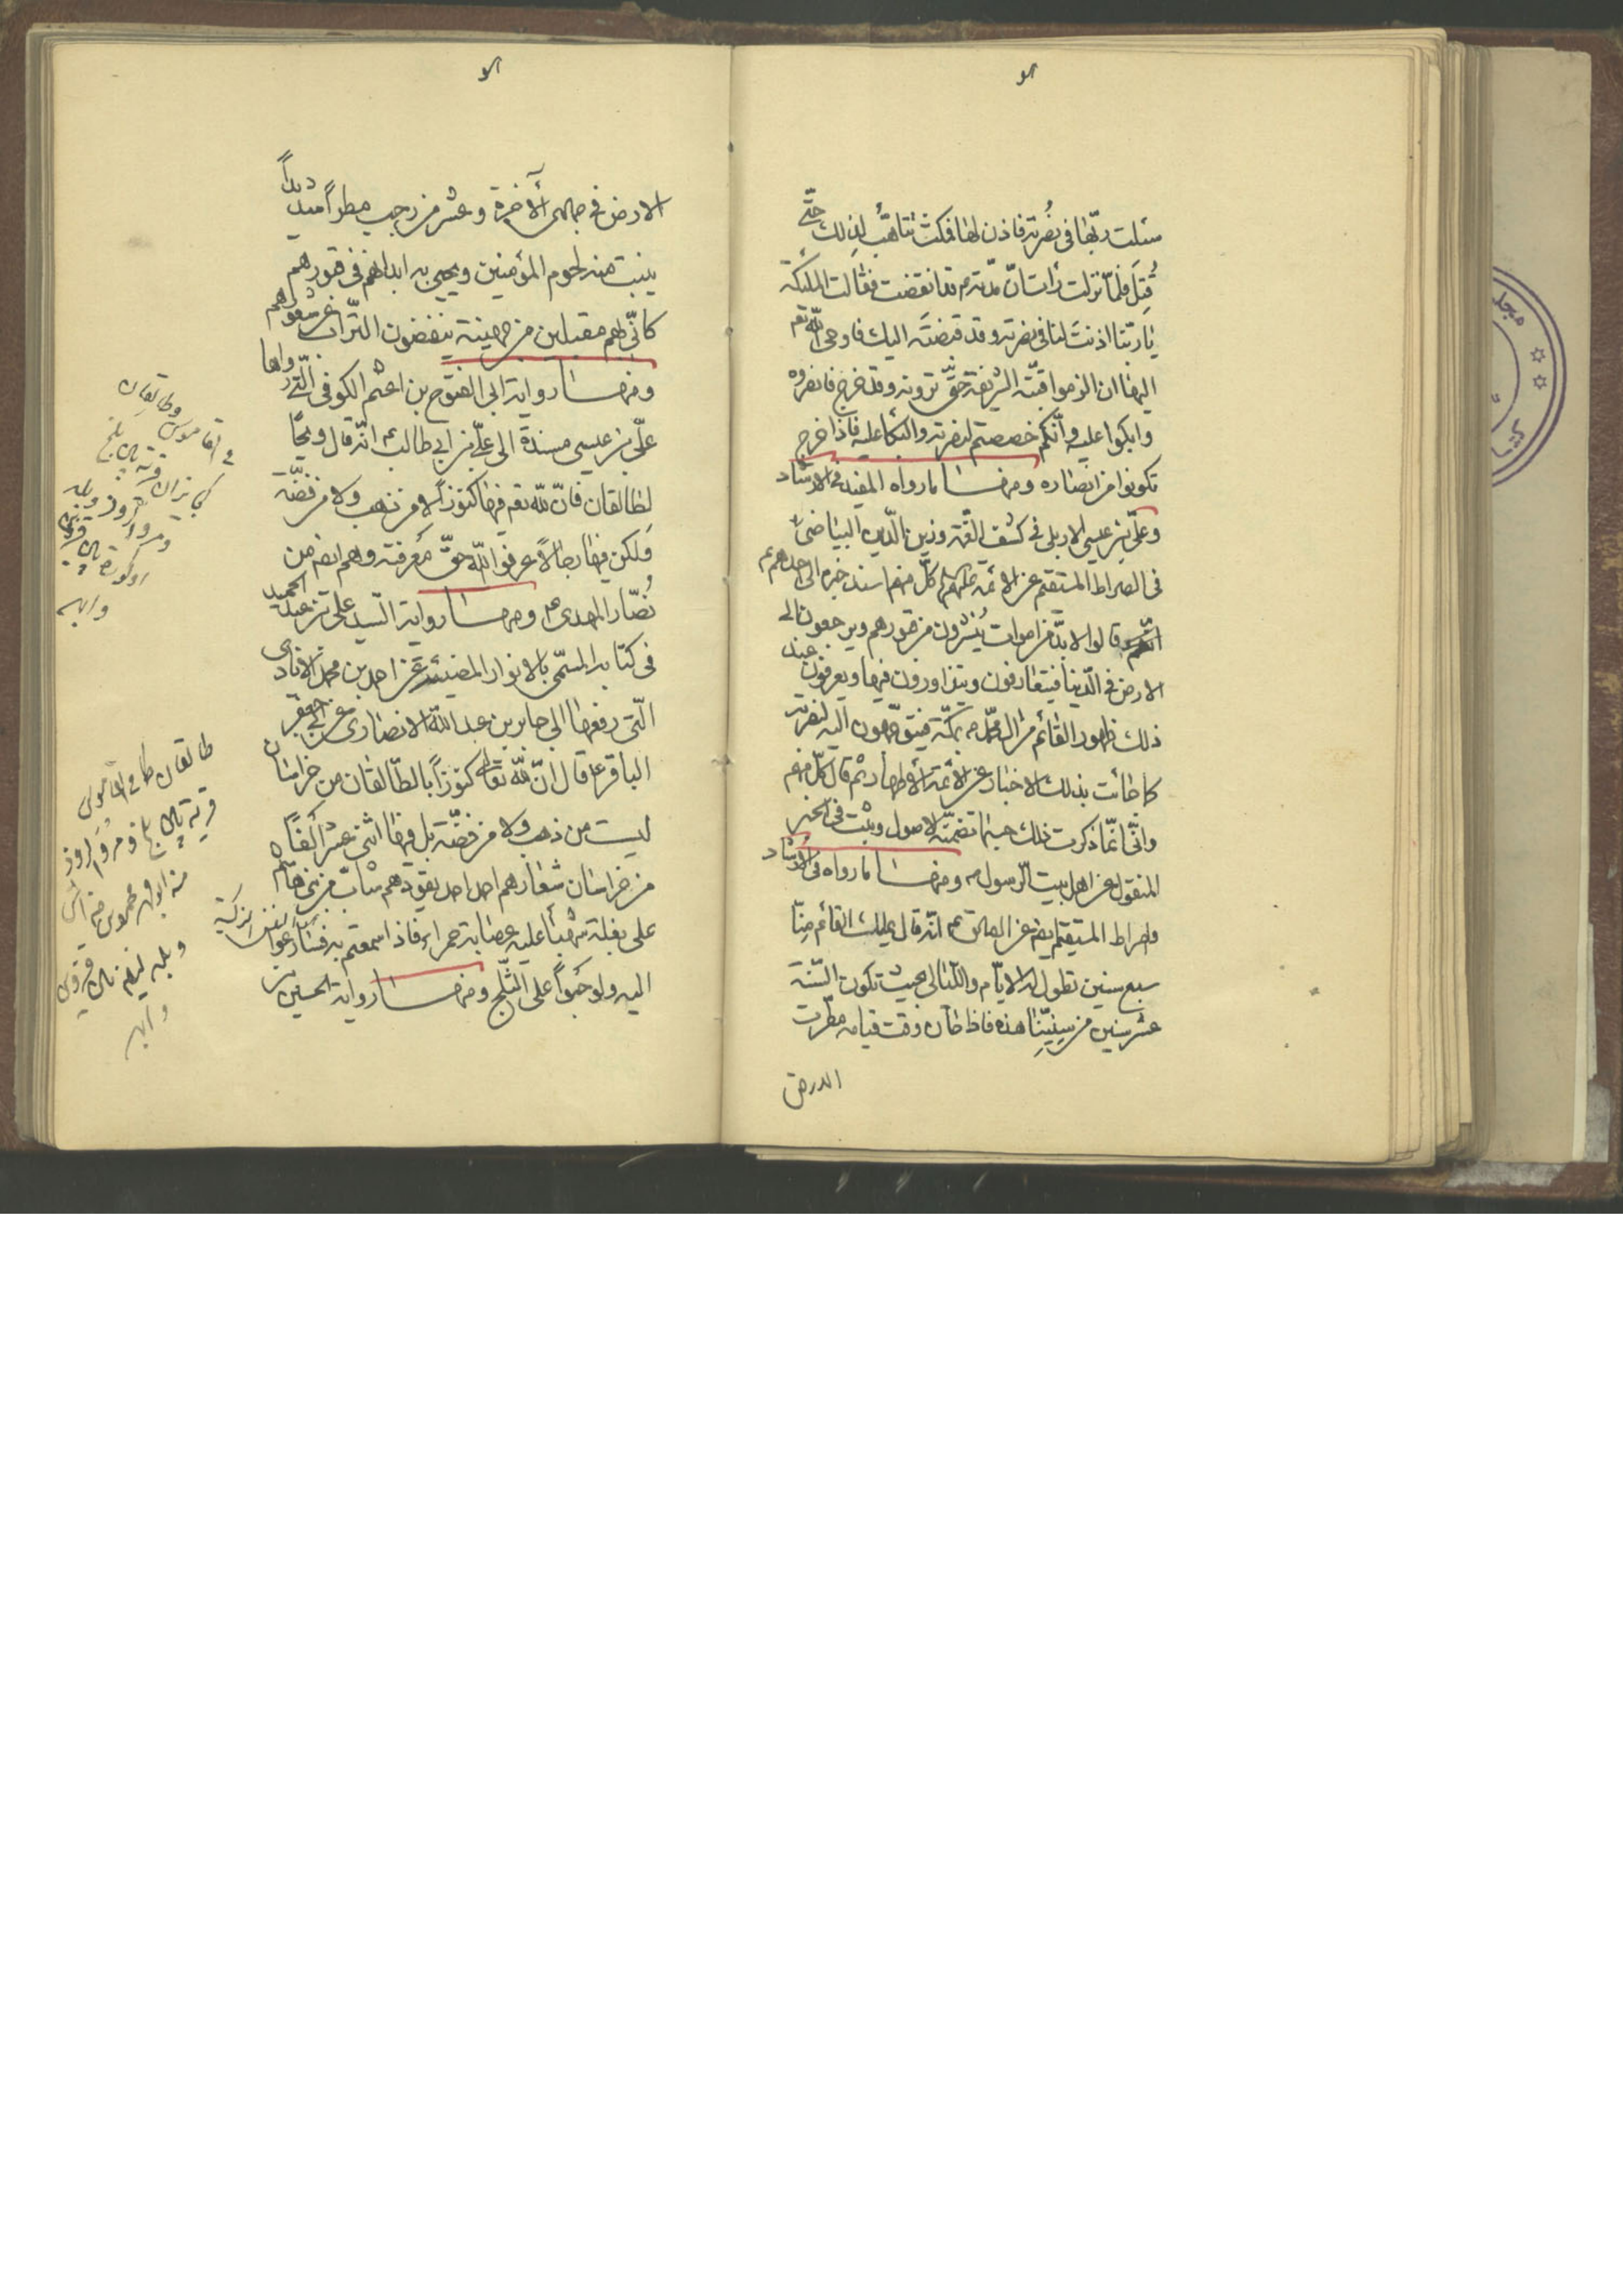 سئلت ربّها فی نُصرته فاذن لها فمکثت تتاهّب لذلک حتّی
قُتِلَ فلمّا نزلت رأت انّ مدّته قد انقضت فقالت الملئکة
یا ربّنا اذنت لنا فی نصرته وقد قبضتَه الیک فاوحی اللّه تعم
الیها ان الزموا قبّته الشریفة حتّی ترونه وقد خرج فانصروه
وابکوا علیه وانّکم خصصتم لنصرته والبکاء علیه فاذا خرج
تکونوا من انصاره ومنها ما رواه المفید فی الارشاد
وعلیّ بن عیسی الاربلی فی کشف الغمّة وزین الدّین البیاضی
فی الصراط المستقیم عن الائمّة علیهم کلّ منهم اسند خبره الی احدهم
انّهم قالوا لا بدّ من اموات یُنشرون من قبورهم ویرجعون الی
الارض فی الدّنیا فیتعارفون ویتزاورون فیها ویعرفون عند
ذلک ظهور القائم من ال محمّد بمکّة فیتوجّهون الیه لنصرته
کما جائت بذلک الاخبار عن الائمّة الاطهار ثم قال کلّ منهم
وانّی انّما ذکرت ذلک حسبما تضمّنته الاصول وثبت فی الخبر
المنقول عن اهل بیت الرّسول ومنها ما رواه فی الارشاد
والصراط المستقیم ایضم عن الصادق انّه قال یملک القائم منّا
سبع سنین تطول له الایّام واللّیالی بحیث تکون السّنة
عشر سنین من سنینّا هذه فاذا حان وقت قیامه مطرت
الارض
الارض فی جمادی الآخرة وعشر من رجب مطراً شدیداً
ینبت منه لحوم المؤمنین ویحیی به ابدانهم فی قبورهم
کانّی بهم مقبلین من جهینة ینفضون التّراب عن شعورهم
ومنها روایة ابی الفتوح بن اعثم الکوفی الّتی رواها
علیّ بن عیسی مسندة الی علیّ بن ابی طالب انّه قال ویحًا
لطالقان فانّ للّه تعم فیها کنوزاً لا من ذهب ولا من فضّة
ولکن فیها رجالاً عرفوا اللّه حقّ معرفته وهم ایضم من
نُصّار المهدی ومنها روایة السّید علی بن عبد الحمید
فی کتابه المسمّی بالانوار المضیئة عن احمد بن محمد الایادی
الّتی رفعها الی جابر بن عبد اللّه الانصاری عن ابی جعفر
الباقر قال انّ للّه تعالی کنوزاً بالطّالقان من خراسان
لیست من ذهب ولا من فضّة بل فیها اثنی عشر الفًا
من خراسان شعارهم احمد احمد یقودهم شابّ من بنی هاشم
علی بغلة شهباء علیه عصابة حمراء فاذا سمعتم به فسارعوا
الیه ولو حبواً علی الثّلج ومنها روایة الحسین بن
وطالقان
فی القاموس
قریة بین بلخ
ومرو الروذ وبلد
او کورة بین قزوین
وابهر
طالقان کما فی القاموس
قریة بین بلخ ومرو الروذ
وبلد او کورة بین قزوین
وابهر